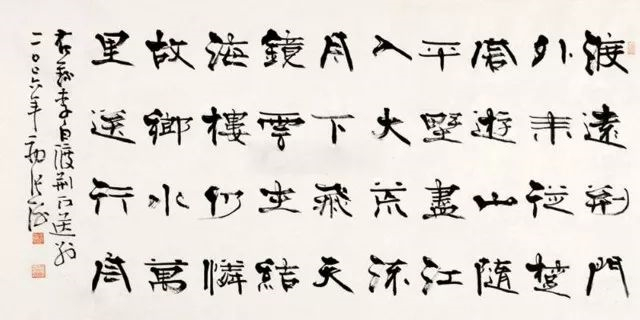 渡遠荆門
外来從楚
國遊山隨
平野盡江
入大荒流
月下飛天
鏡雲生結
海樓仍憐
故鄉水萬
里送行舟
右録李白渡荆门送别
二〇〇六年初張海